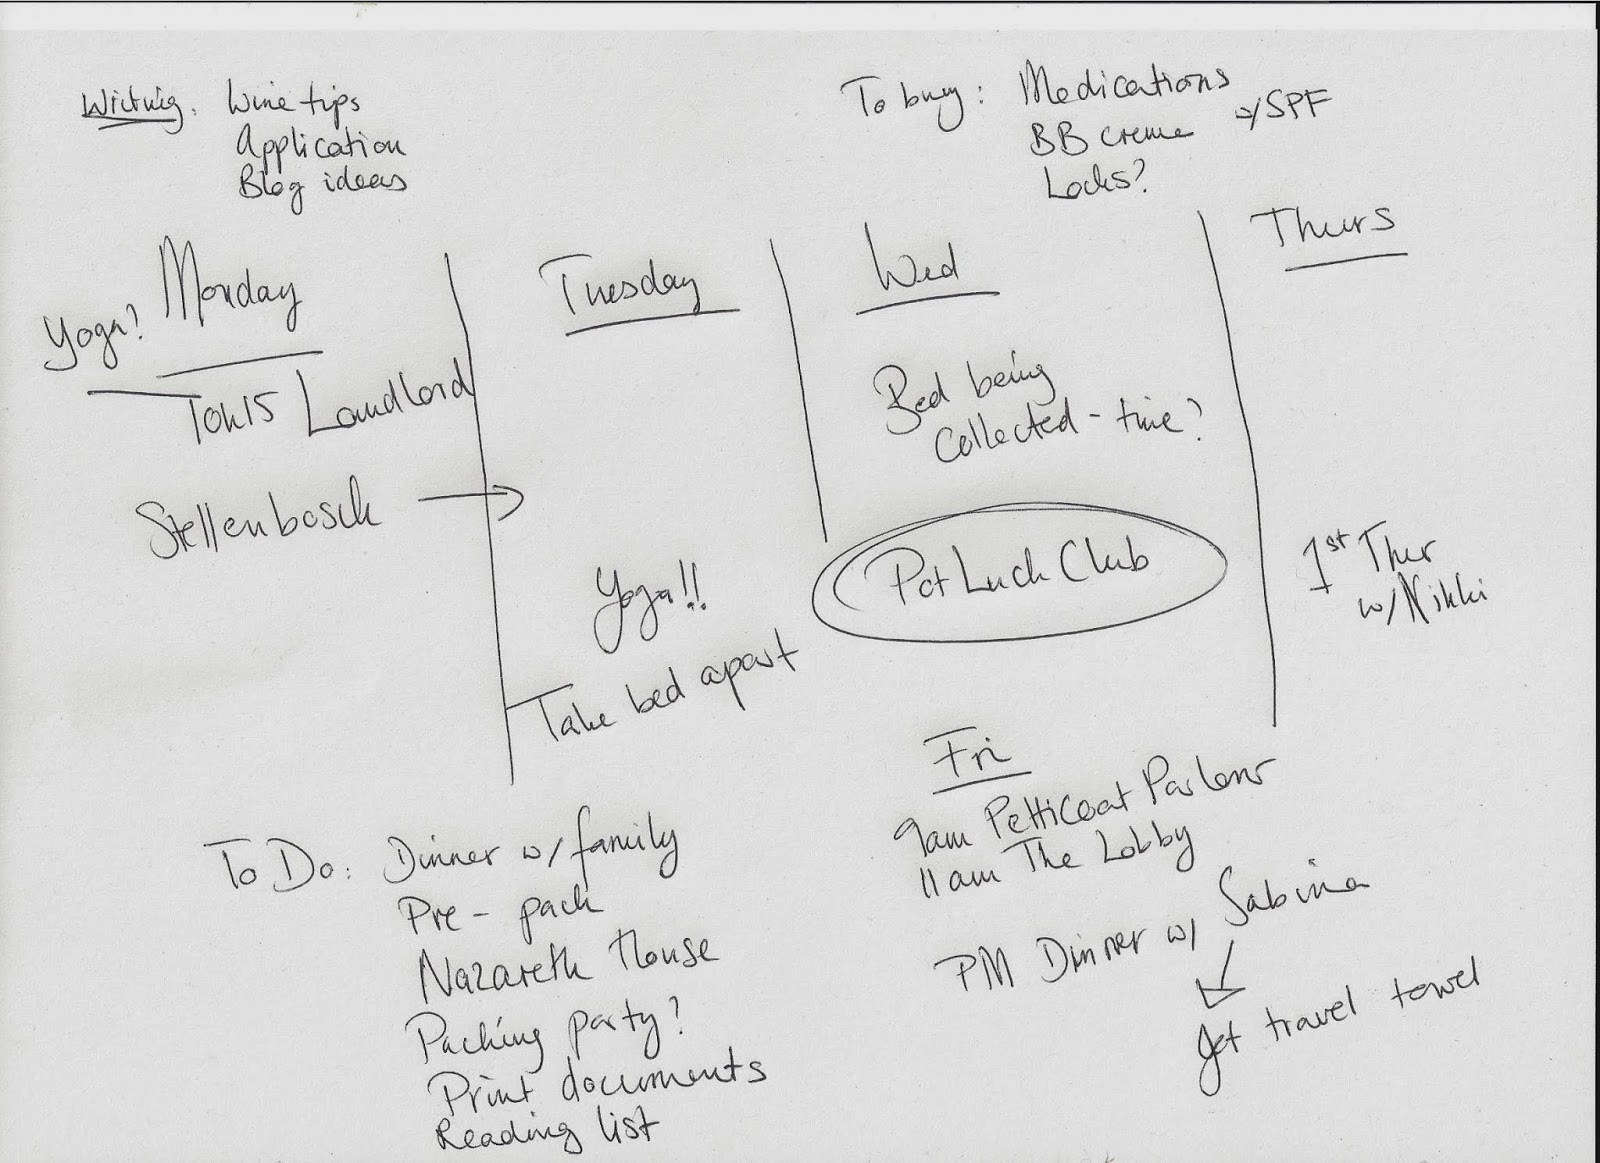 Writing: Wine tips
Application
Blog ideas
To buy: Medications
BB creme w/SPF
Locks?
Yoga? Monday
10h15 Landlord
Stellenbosch →
Tuesday
Yoga!!
Take bed apart
Wed
Bed being
collected - time?
Pot Luck Club
Thurs
1st Thur
w/Nikki
Fri
9am Petticoat Parlour
11am The Lobby
PM Dinner w/ Sabina
Get travel towel
To Do: Dinner w/ family
Pre-pack
Nazareth House
Packing party?
Print documents
Reading list